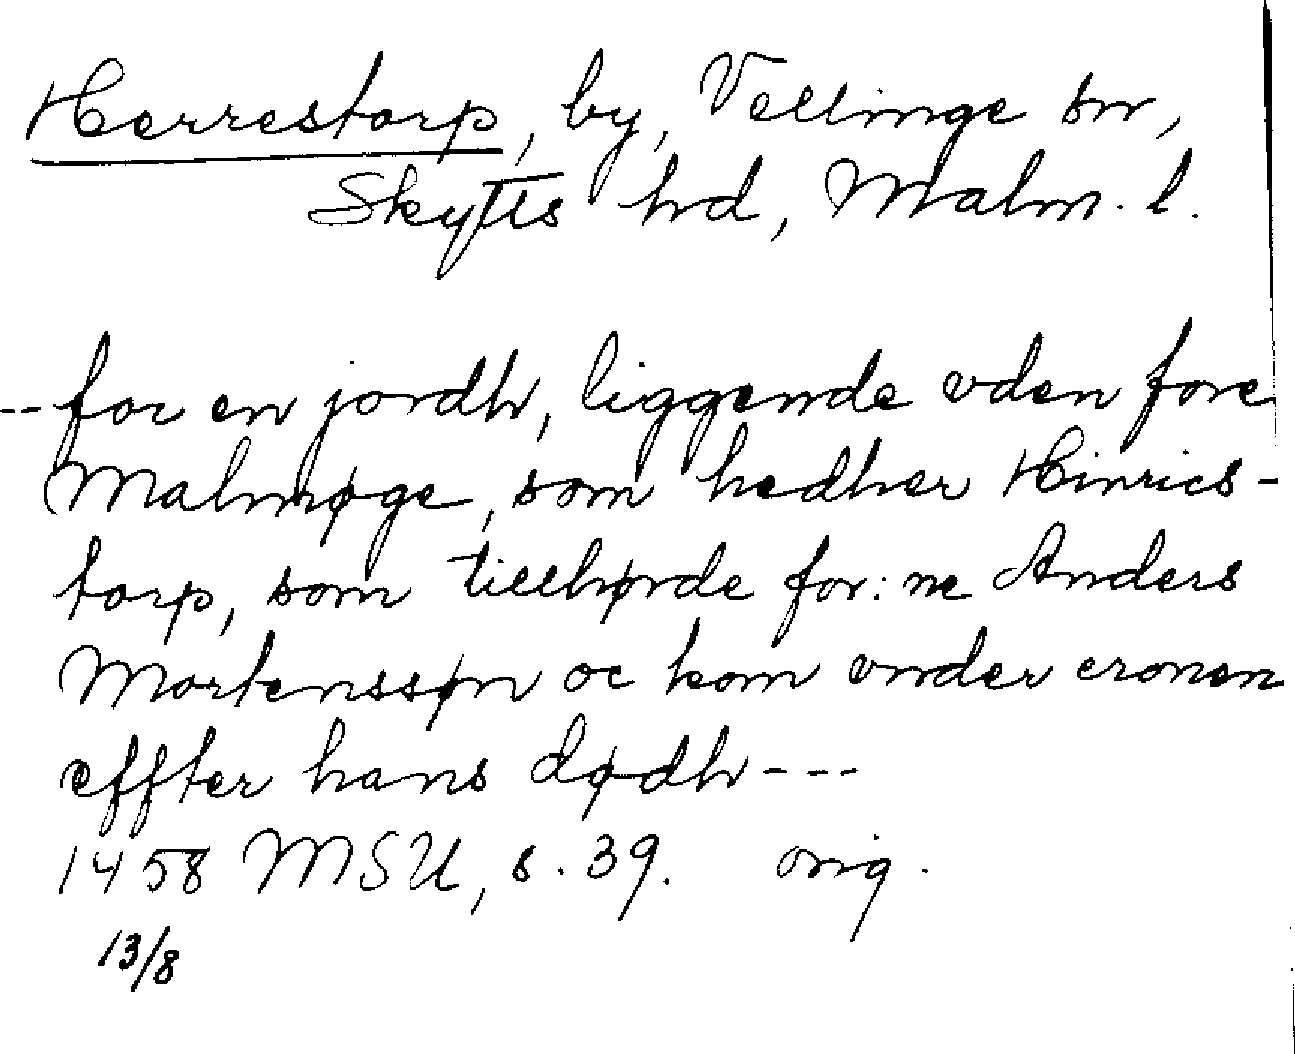 Herrestorp, by, Vellinge sn,
Skytts hd, Malm. l.
-- for en jordh, liggende vden fore
Malmøge, som hedher Hinrics-
torp, som tillhørde for: ne Anders
Mortenssøn oc kom vnder cronen
effter hans dødh ---
1458 MSU, s. 39. orig.
13/8